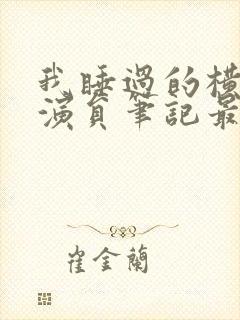 我睡過的橫
演員筆記最
崔金蘭